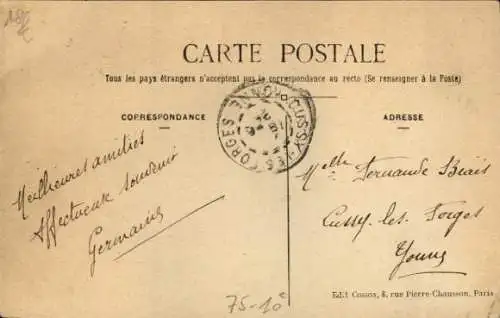 CARTE POSTALE
Tous les pays étrangers n'acceptent pas la correspondance au recto (Se renseigner à la Poste)
CORRESPONDANCE
ADRESSE
CUSSY-LES-FORGES YONNE
Meilleures amitiés
Affectueux souvenir
Germaine
Melle Fernande Biais
Cussy-les-Forges
Yonne
Edit Cossox, 8, rue Pierre-Chausson, Paris
75-10